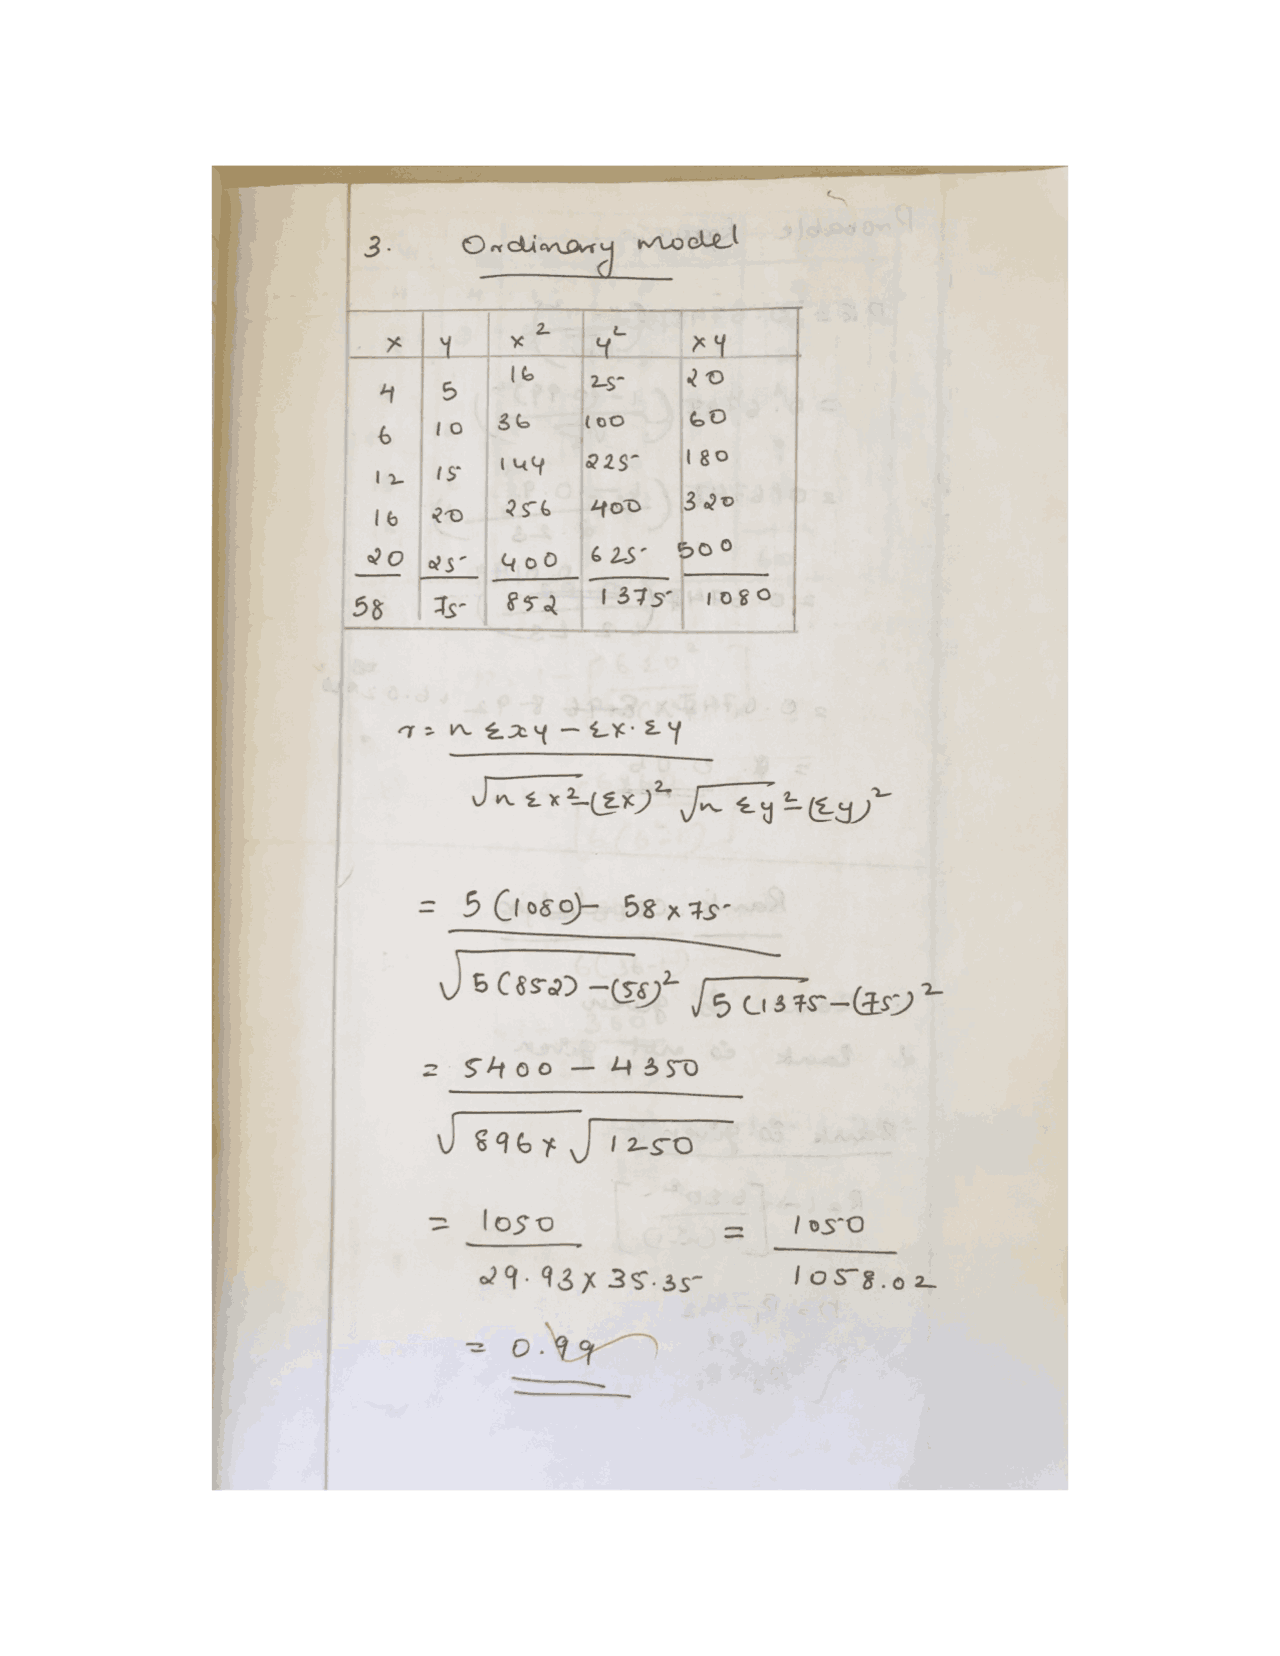 3. Ordinary model
x y x² y² xy
4 5 16 25 20
6 10 36 100 60
12 15 144 225 180
16 20 256 400 320
20 25 400 625 500
58 75 852 1375 1080
r = n Σxy - Σx. Σy
√n Σx² - (Σx)² √n Σy² - (Σy)²
= 5 (1080) - 58 x 75
√5 (852) - (58)² √5 (1375 - (75)²
= 5400 - 4350
√896 x √1250
= 1050 = 1050
29.93 x 35.35 1058.02
= 0.99